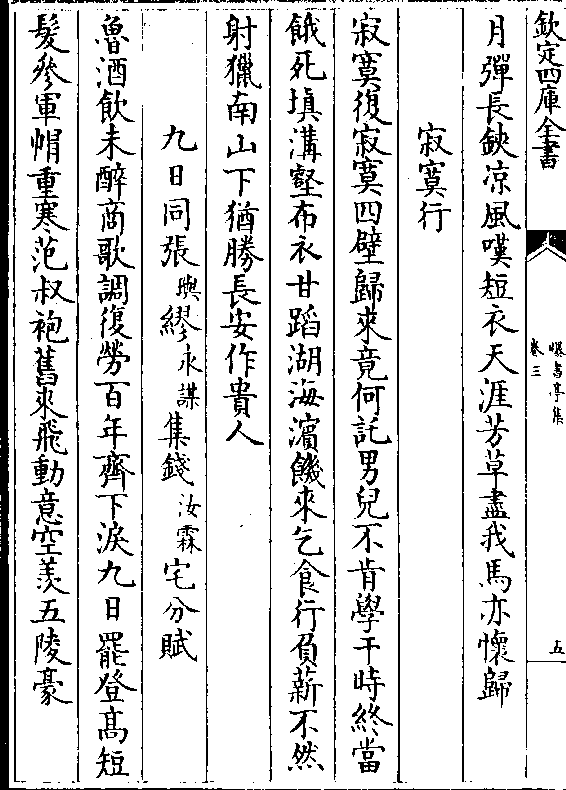 欽定四庫全書
曝書亭集
卷三
五
月彈長鋏凉風嘆短衣天涯芳草盡我馬亦懷歸
寂寞行
寂寞復寂寞四壁歸來竟何託男兒不肯學干時終當
餓死填溝壑布衣甘蹈湖海濱饑來乞食行負薪不然
射獵南山下猶勝長安作貴人
九日同張與繆永謀集錢汝霖宅分賦
魯酒飲未醉商歌調復勞百年齊下淚九日罷登髙短
髪參軍帽重寒范叔袍舊來飛動意空羨五陵豪